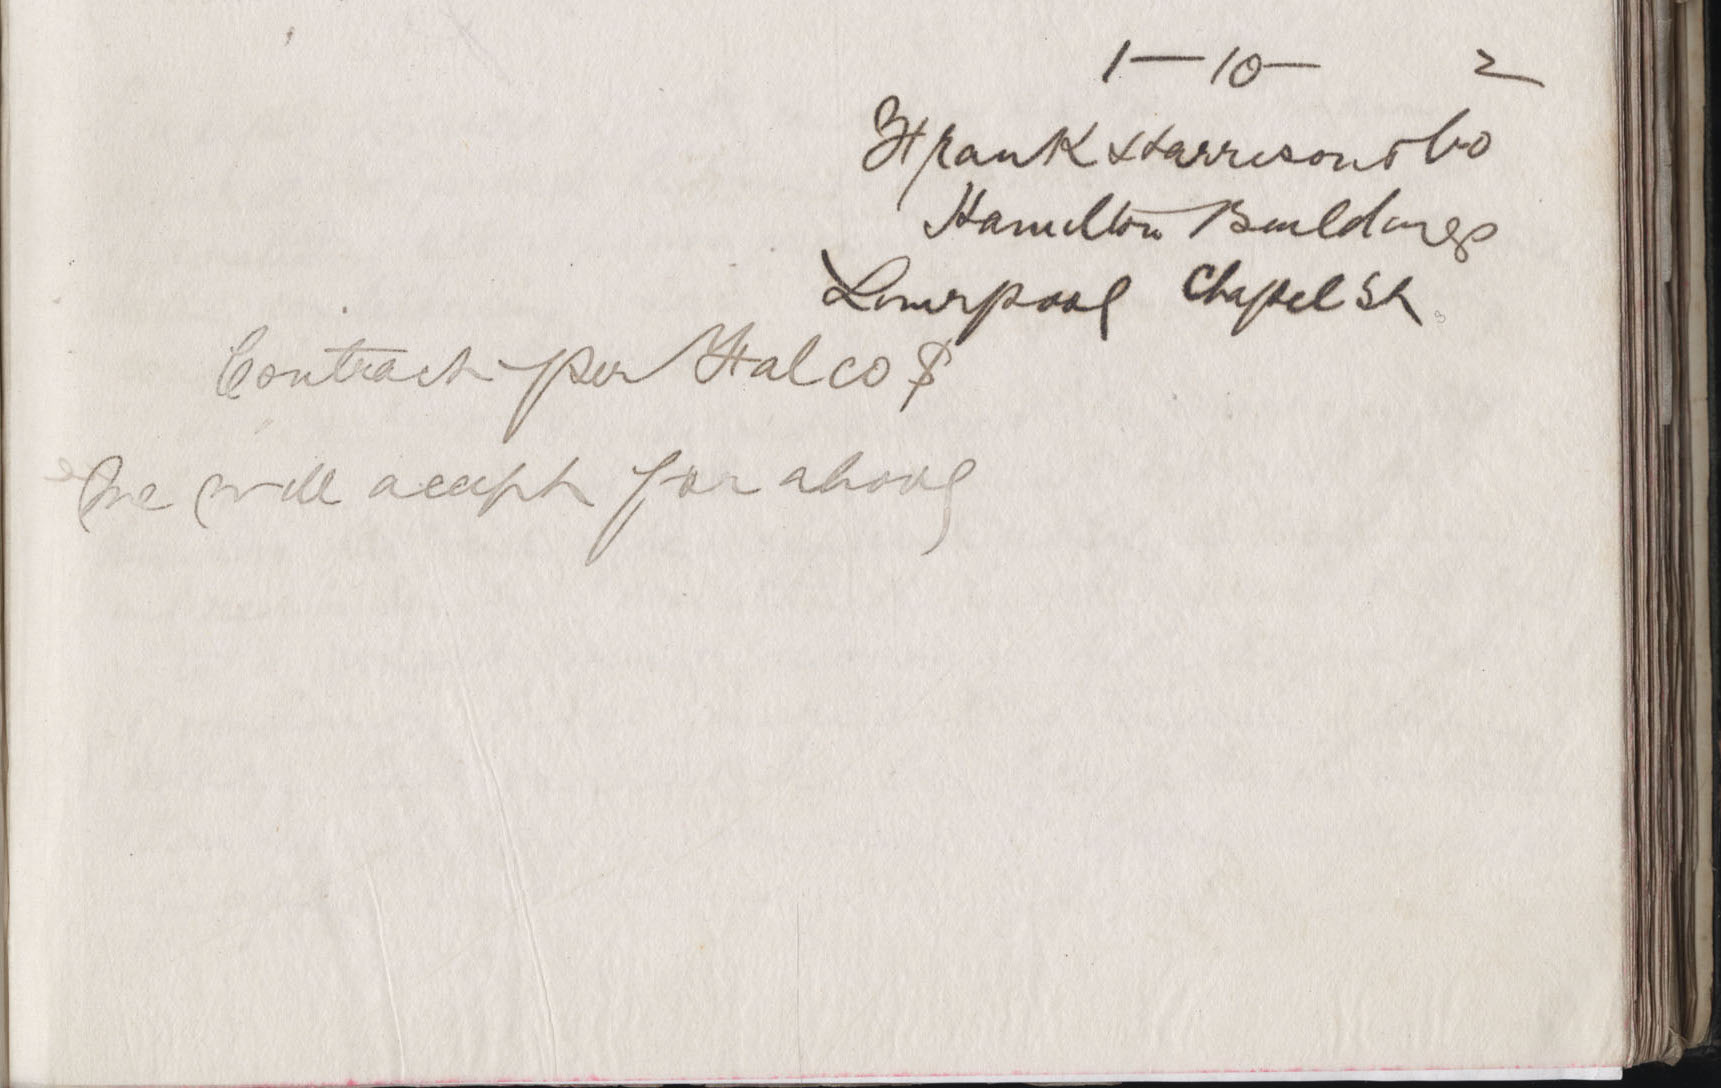 1 — 10 — 2
Frank Harrison & Co
Hamilton Buildings
Liverpool Chapel St.
Contract per Halco $
We will accept for above